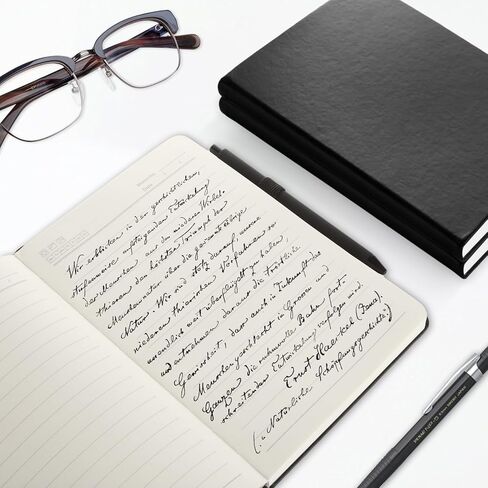 Wir erblicken in der geschichtlichen,
stufenweise aufsteigenden Entwickelung
der Menschen aus den niederen Wirbel-
thieren den höchsten Triumph der
Menschennatur über die gesammte übrige
Natur. Wir sind stolz darauf, unsere
niederen thierischen Vorfahren so
unendlich weit überflügelt zu haben,
und entnehmen daraus die tröstliche
Gewissheit, dass auch in Zukunft das
Menschengeschlecht im Grossen und
Ganzen die ruhmvolle Bahn fort-
schreitender Entwickelung verfolgen wird.
Ernst Haeckel (Jena).
(: Natürliche Schöpfungsgeschichte:)